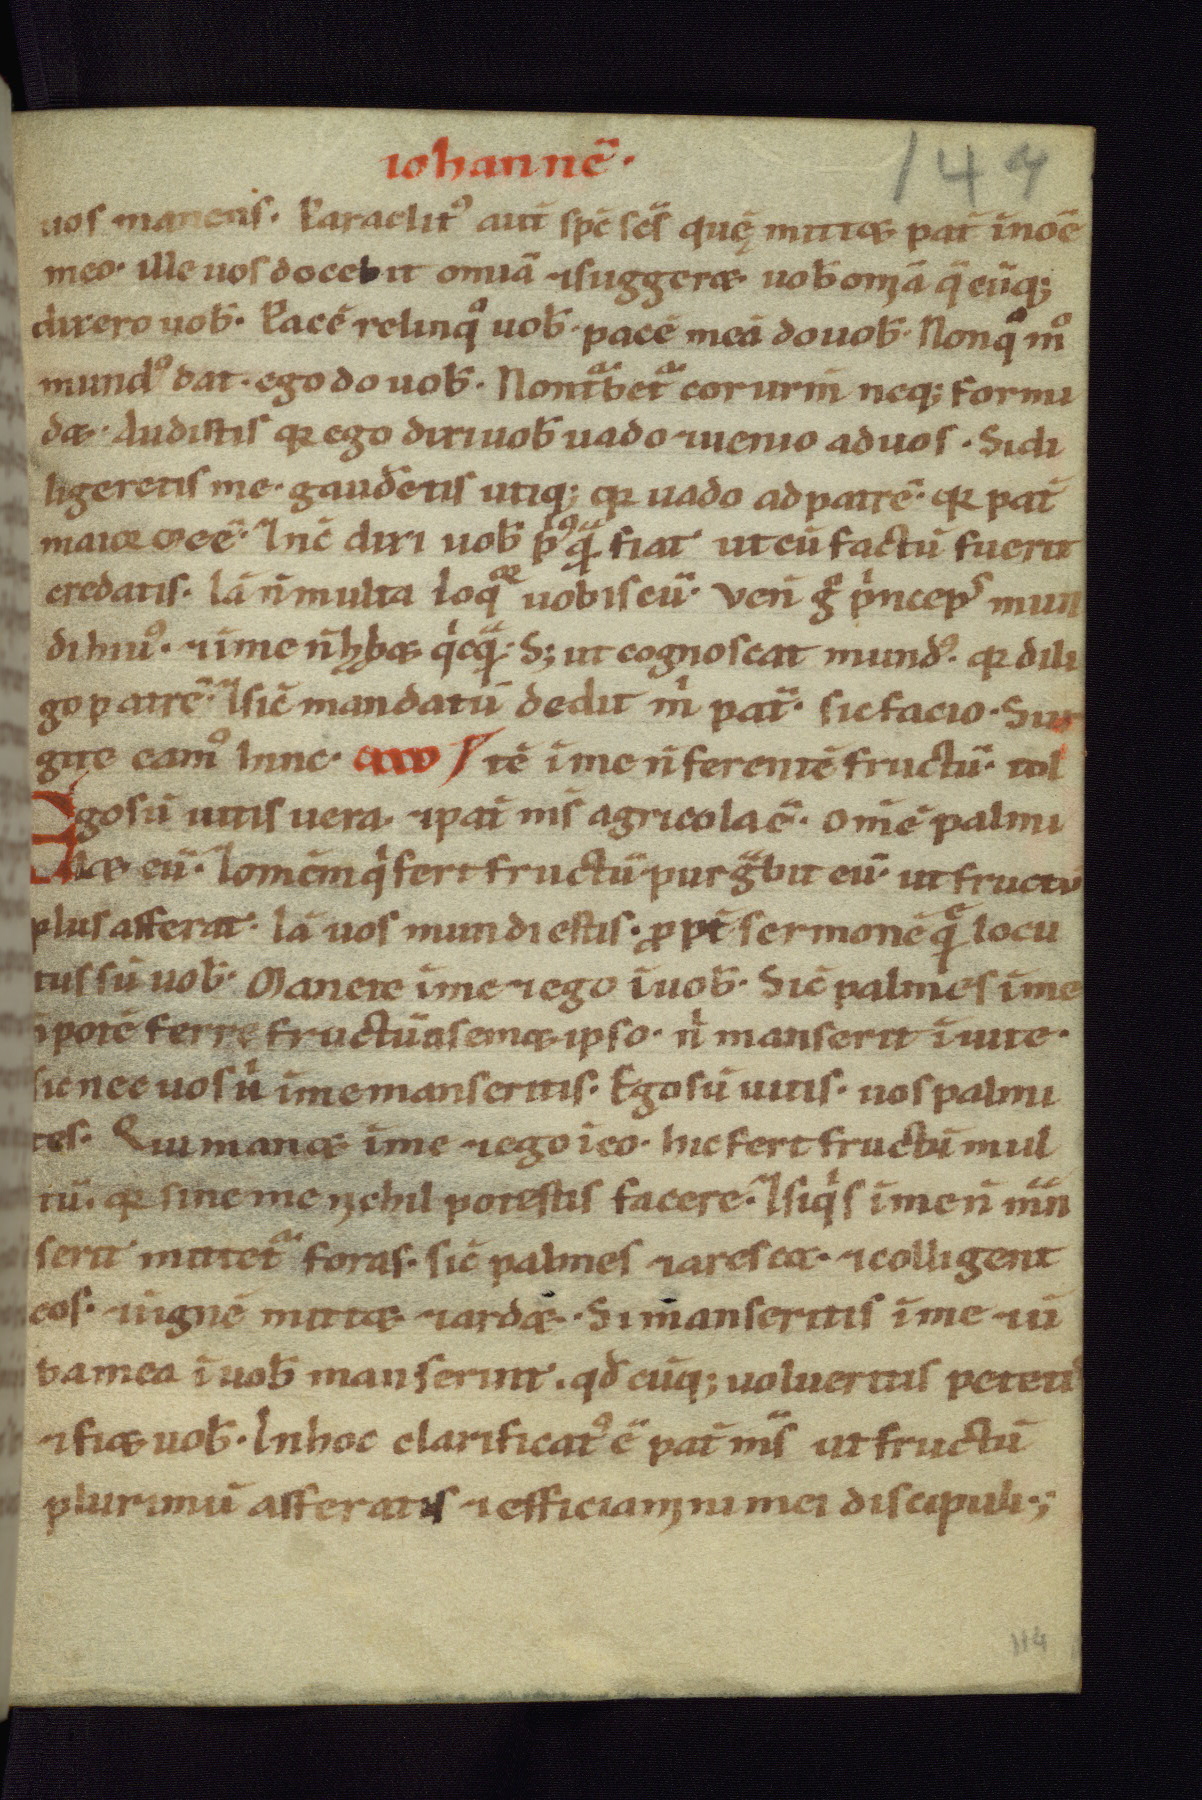 iohannē·
147
uos manens· Paraclit⁹ aut̄ sp̄c sc̄s quē mittæ pat̄ inōe
meo· ille uos docebit omīa ⁊suggeræ uob̄ omīa q̄cūq;
dixero uob̄· Pacē relinqͦ uob̄· pacē meā do uob̄· Nonqͦ mͦ
mund⁹ dat· ego do uob̄· Non tᵃbetᵃ cor urm̄ neq; formi
dæ· Audistis qꝛ ego dixi uob̄ uado ⁊uenio ad uos· Si di
ligeretis me· gaud̄etis utiq; qꝛ uado ad patrē· qꝛ pat̄
maior me ē· ⁊nc̄ dixi uob̄ p⁹qᵃ fiat· ut cū factū fuerit
credatis· Iā n̄ multa loqᵒʳ uobiscū· Ven̄ g̊ pͥnceps mun
di hui⁹· ⁊ime n̄ hȝbæ qͥcqᵃ· S; ut cognoscat mund⁹· qꝛ dili
go patrē· ⁊sic̄ mandatū dedit mͥ pat̄· sic facio· Sur
gite eam⁹ hinc· tē ime n̄ ferentē fructū· tol
Ego sū uitis uera· ⁊pat̄ ms̄ agricola ē· omēm palmi
læ eū· ⁊omēm qͥ fert fructū purgᵃbit eū· ut fructū
plus afferat· Iā uos mundi estis· ꝓpt̄ sermonē quē locu
tus sū uob̄· Manete ime ⁊ego iuob̄· Sic̄ palmes ime
n̄ potē ferre fructū asemæ ipso· nͥ manserit iuite·
sic nec uos nͥ ime manseritis· Ego sū uitis· uos palmi
tes· Qui manæ ime ⁊ego ieo· hic fert fructū mul
tū· qꝛ sine me nichil potestis facere· ⁊siqͥs ime n̄ mān
serit mittetᵃ foras· sic̄ palmes ⁊arescæ· ⁊colligent
eos· ⁊iignē mittæ ⁊ardæ· Si manseritis ime ⁊ū
ba mea iuob̄ manserint· qd̄ cūq; uolueritis petetis
⁊ fiæ uob̄· In hoc clarificat⁹ ē pat̄ ms̄ ut fructū
plurimū afferatis ⁊efficiamini mei discipuli·;
114